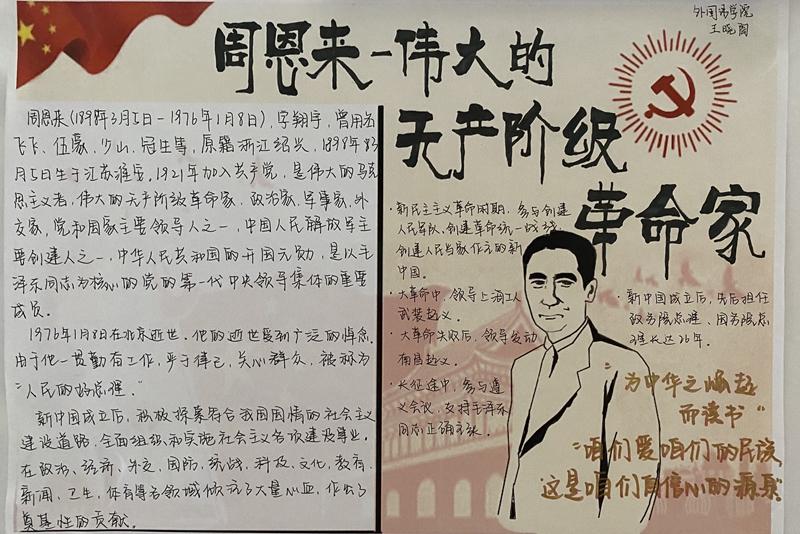 外国语学院
周恩来-伟大的
无产阶级
革命家
周恩来(1898年3月5日-1976年1月8日),字翔宇,曾用名
飞飞、伍豪、少山、冠生等,原籍浙江绍兴,1898年3
月5日生于江苏淮安。1921年加入共产党,是伟大的马克
思主义者,伟大的无产阶级革命家、政治家、军事家、外
交家,党和国家主要领导人之一,中国人民解放军主
要创建人之一,中华人民共和国的开国元勋,是以毛
泽东同志为核心的党的第一代中央领导集体的重要
成员。
1976年1月8日在北京逝世。他的逝世受到广泛的悼念
由于他一贯勤奋工作,严于律己,关心群众,被称为
"人民的好总理。"
新中国成立后,积极探索符合我国国情的社会主义
建设道路,全面组织和实施社会主义各项建设事业。
在政治、经济、外交、国防、统战、科技、文化、教育、
新闻、卫生、体育等各领域倾注了大量心血,作出了
奠基性的贡献。
·新民主主义革命时期,参与创建
人民军队、创建革命统一战线、
创建人民当家作主的新
中国。
·大革命中,领导上海工人
武装起义。
·大革命失败后,领导发动
南昌起义。
·长征途中,参与遵
义会议,支持毛泽东
同志正确主张。
·新中国成立后,先后担任
政务院总理、国务院总
理长达26年。
为中华之崛起
而读书"
"咱们爱咱们的民族
这是咱们自信心的源泉